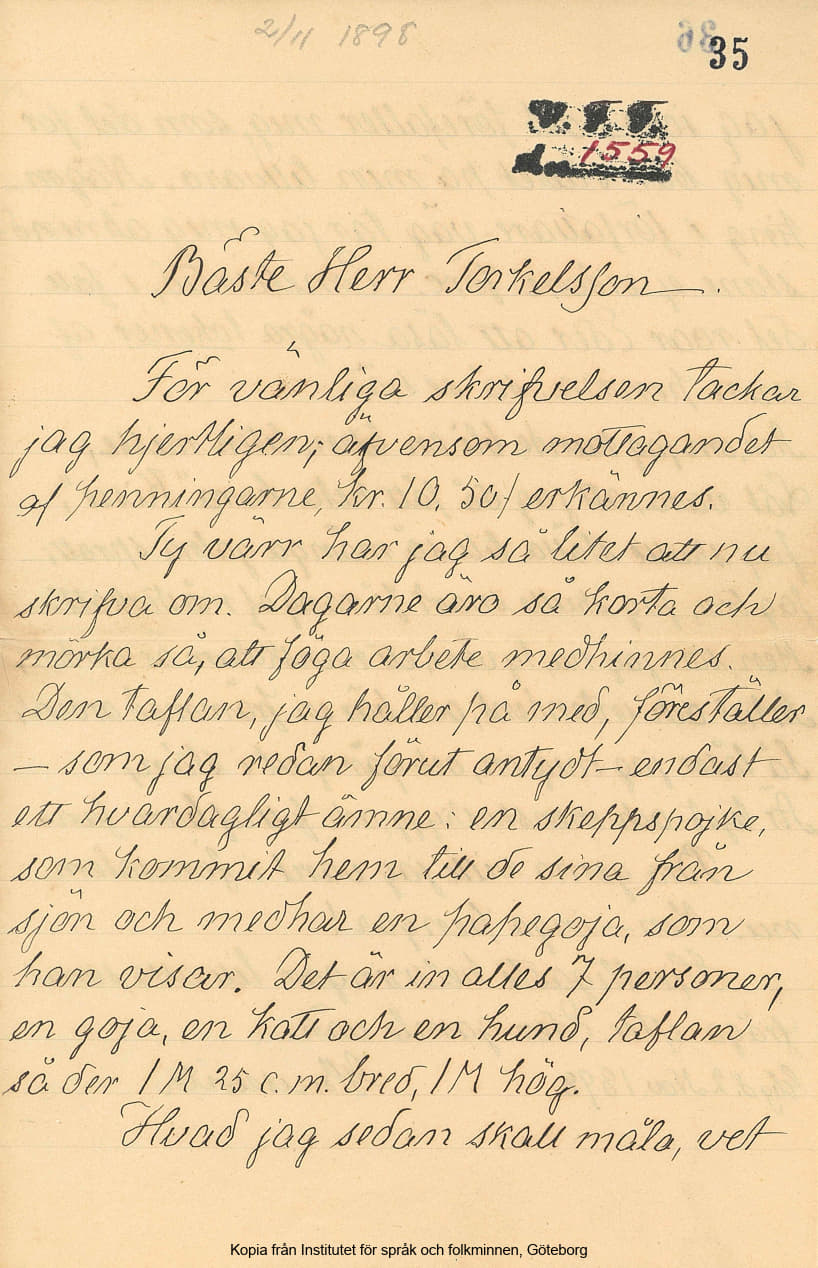 2/11 1898
35
V. F. F.
dnr 1559
Bäste Herr Torkelsson.
För vänliga skrifvelsen tackar
jag hjertligen; äfvensom mottagandet
af penningarne, kr. 10, 50/ erkännes.
Ty värr har jag så litet att nu
skrifva om. Dagarne äro så korta och
mörka så, att föga arbete medhinnes.
Den taflan, jag håller på med, föreställer
– som jag redan förut antydt – endast
ett hvardagligt ämne: en skeppspojke,
som kommit hem till de sina från
sjön och medhar en papegoja, som
han visar. Det är in alles 7 personer,
en goja, en katt och en hund, taflan
så der 1 M 25 c.m. bred, 1 M hög.
Hvad jag sedan skall måla, vet
Kopia från Institutet för språk och folkminnen, Göteborg